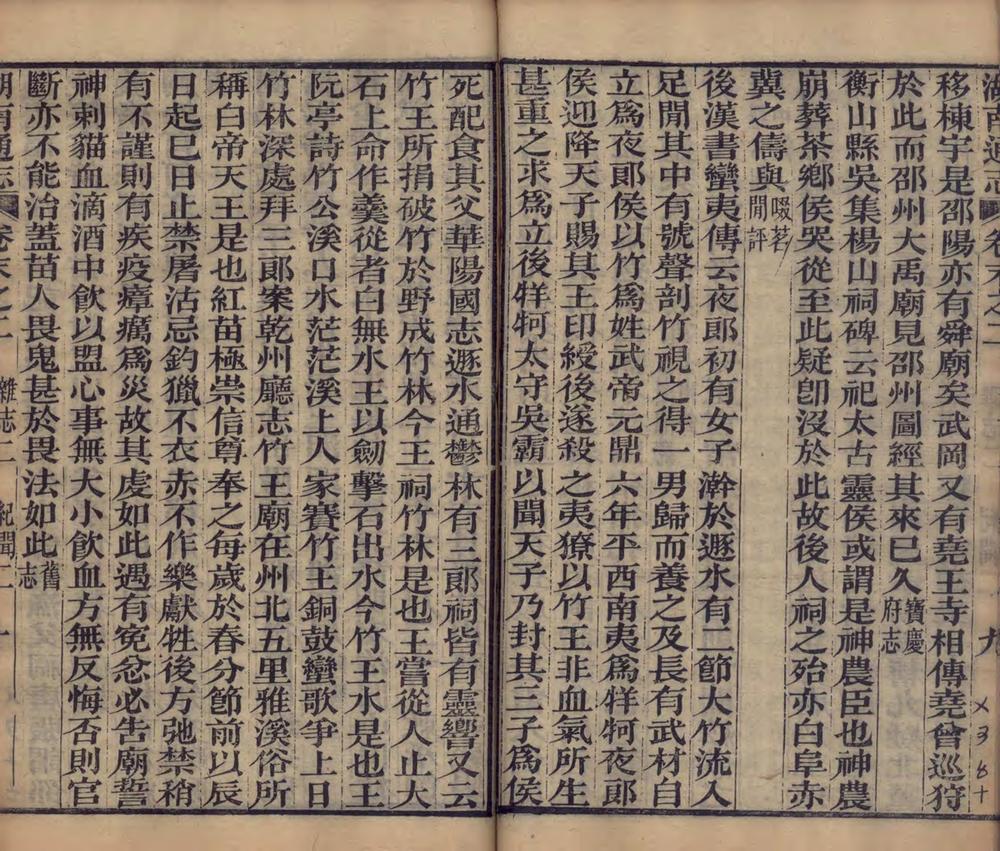 湖南通志 卷末之二 九
移棟宇是邵陽亦有舜廟矣武岡又有堯王寺相傳堯曾巡狩
於此而邵州大禹廟見邵州圖經其來已久寶慶府志
衡山縣吳集楊山祠碑云祀太古靈侯或謂是神農臣也神農
崩葬茶鄉侯哭從至此疑卽沒於此故後人祠之殆亦白阜赤
冀之儔與啜茗閒評
後漢書蠻夷傳云夜郎初有女子澣於遯水有一節大竹流入
足閒其中有號聲剖竹視之得一男歸而養之及長有武材自
立爲夜郎侯以竹爲姓武帝元鼎六年平西南夷爲牂牁夜郎
侯迎降天子賜其王印綬後遂殺之夷獠以竹王非血氣所生
甚重之求爲立後牂牁太守吳霸以聞天子乃封其三子爲侯
死配食其父華陽國志遯水通鬱林有三郎祠皆有靈響又云
竹王所捐破竹於野成竹林今王祠竹林是也王嘗從人止大
石上命作羹從者白無水王以劒擊石出水今竹王水是也王
阮亭詩竹公溪口水茫茫溪上人家賽竹王銅鼓蠻歌爭上日
竹林深處拜三郎案乾州廳志竹王廟在州北五里雅溪俗所
稱白帝天王是也紅苗極崇信尊奉之每歲於春分節前以辰
日起巳日止禁屠沽忌釣獵不衣赤不作樂獻牲後方弛禁稍
有不謹則有疾疫瘴癘爲災故其虔如此遇有冤忿必告廟誓
神刺貓血滴酒中飲以盟心事無大小飲血方無反悔否則官
斷亦不能治蓋苗人畏鬼甚於畏法如此舊志
湖南通志 卷末之二 雜志二 紀聞二 十